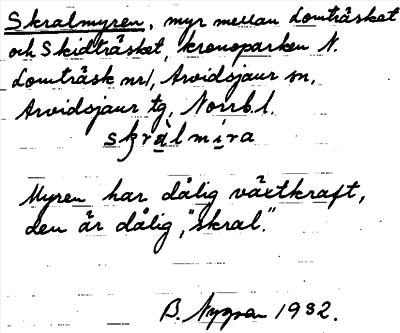 Skralmyren, myr mellan Lomträsket
och Skidträsket, kronoparken N.
Lomträsk nr1, Arvidsjaur sn,
Arvidsjaur tg, Norrb.l.
skràlmira
Myren har dålig växtkraft,
den är dålig, "skral."
B. Nygren 1932.